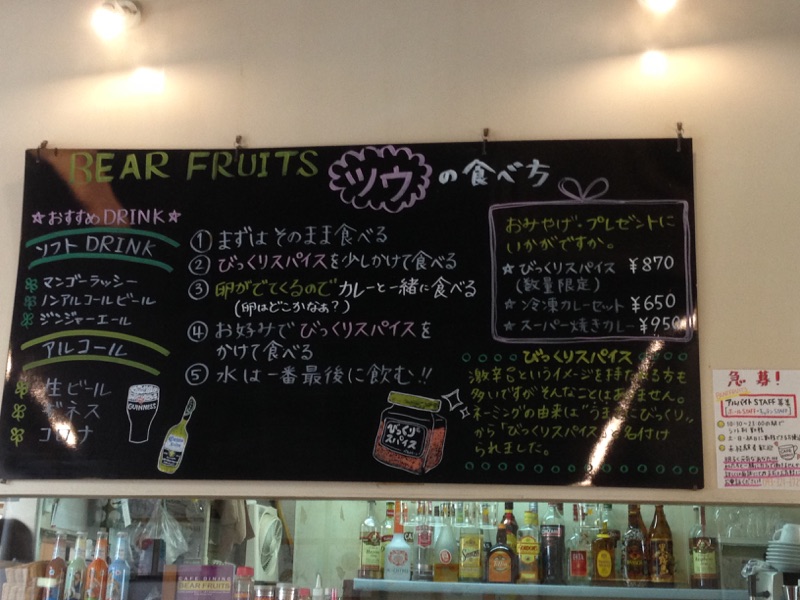 BEAR FRUITS ツウの食べ方
☆おすすめDRINK☆
ソフトDRINK
マンゴーラッシー
ノンアルコールビール
ジンジャーエール
アルコール
生ビール
ギネス
コロナ
GUINNESS
① まずはそのまま食べる
② びっくりスパイスを少しかけて食べる
③ 卵がでてくるのでカレーと一緒に食べる
(卵はどこかなぁ?)
④ お好みでびっくりスパイスを
かけて食べる
⑤ 水は一番最後に飲む!!
びっくり
スパイス
おみやげ・プレゼントに
いかがですか。
☆ びっくりスパイス ¥870
(数量限定)
☆ 冷凍カレーセット ¥650
☆ スーパー焼きカレー ¥950
びっくりスパイス
激辛!!というイメージを持たれる方も
多いですがそんなことはありません。
ネーミングの由来は"うまさにびっくり"
から「びっくりスパイス」と名付け
られました。
急募!
アルバイトSTAFF募集
CAFE DINING
BEAR FRUITS